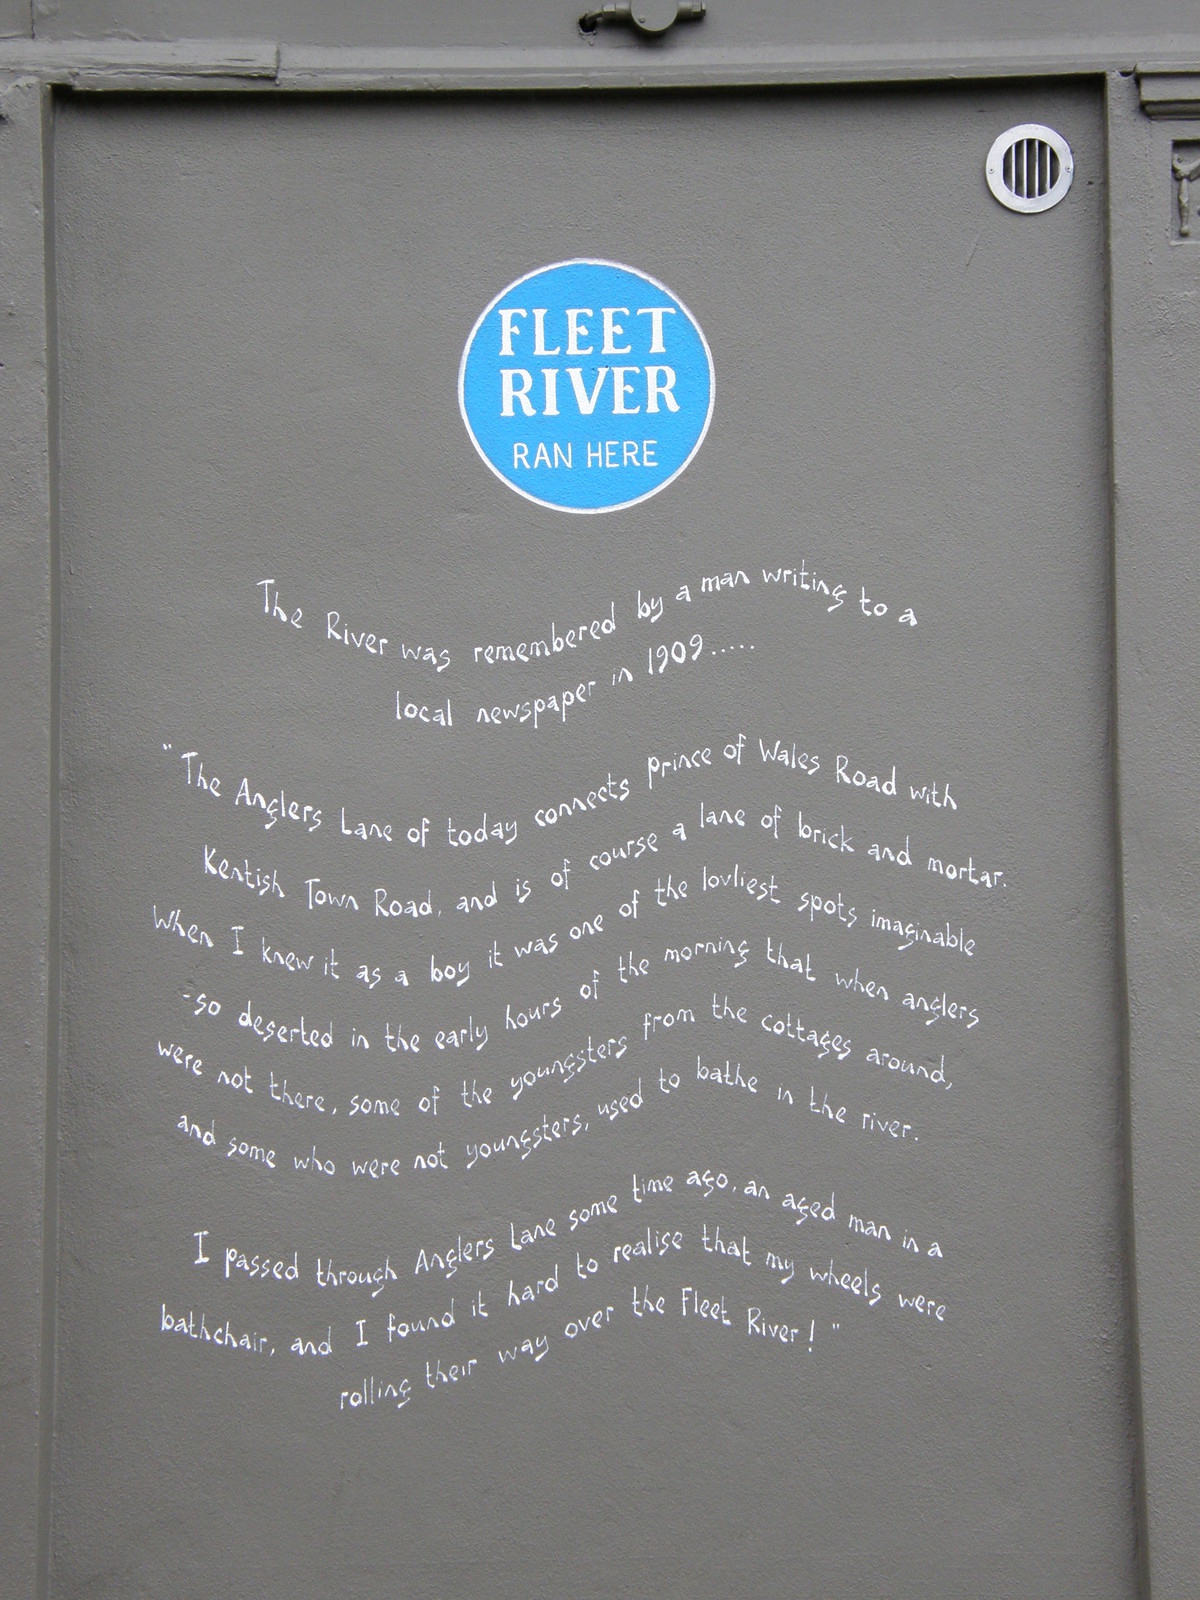 FLEET
RIVER
RAN HERE
The River was remembered by a man writing to a
local newspaper in 1909.....
"The Anglers Lane of today connects prince of Wales Road with
Kentish Town Road, and is of course a lane of brick and mortar.
When I knew it as a boy it was one of the lovliest spots imaginable
-so deserted in the early hours of the morning that when anglers
were not there, some of the youngsters from the cottages around,
and some who were not youngsters, used to bathe in the river.
I passed through Anglers Lane some time ago, an aged man in a
bathchair, and I found it hard to realise that my wheels were
rolling their way over the Fleet River!"